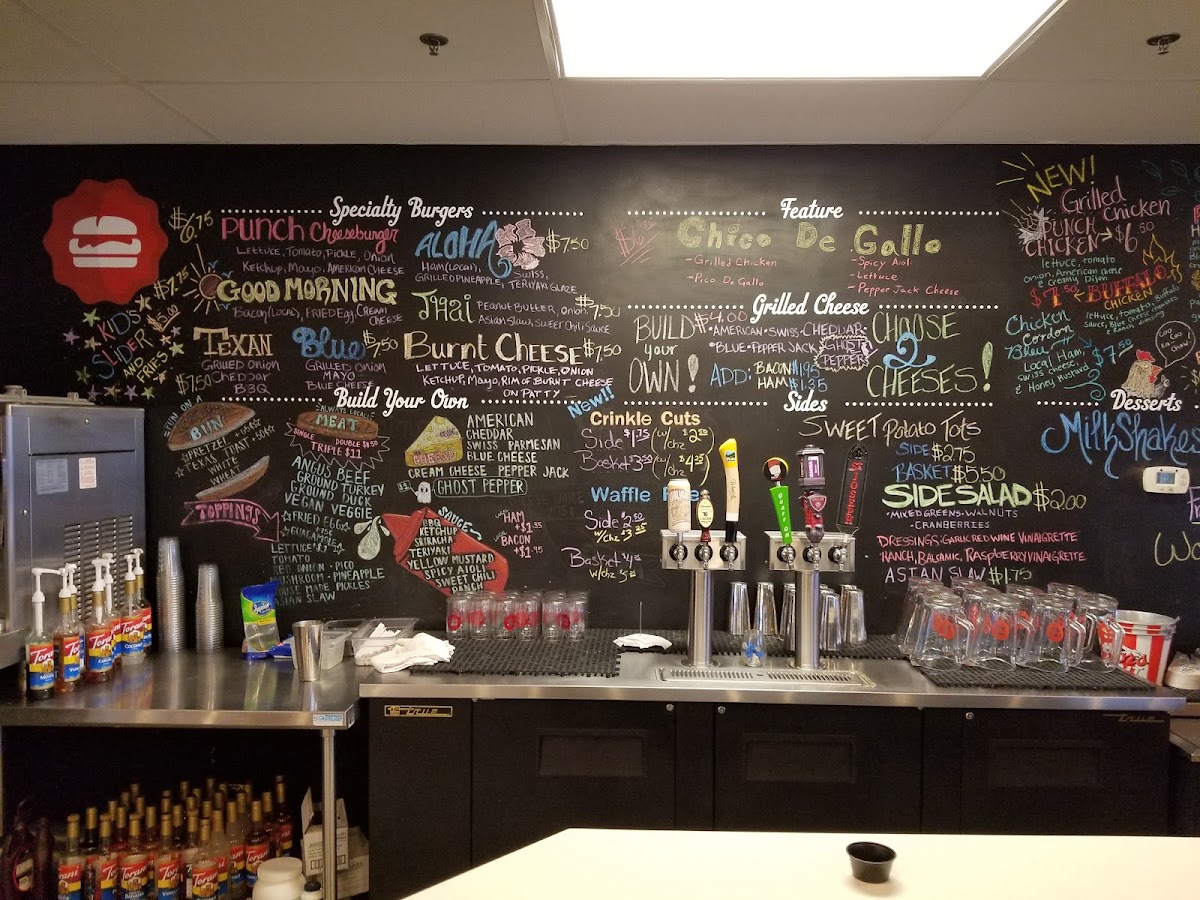 Specialty Burgers
$6.75
PUNCH cheeseburger
Lettuce, Tomato, Pickle, Onion
Ketchup, Mayo, American Cheese
$7.75
GOOD MORNING
Bacon (Local), Fried Egg, Cream Cheese
KID'S SLIDER $5.00
AND FRIES
TEXAN
Grilled Onion
Cheddar
BBQ
$7.50
Blue $7.50
Grilled Onion
Mayo
Blue Cheese
ALOHA $7.50
Ham (Local), Swiss,
Grilled Pineapple, Teriyaki Glaze
Thai Peanut Butter, Onion, $7.50
Asian Slaw, Sweet Chili Sauce
Burnt CHEESE $7.50
Lettuce, Tomato, Pickle, Onion
Ketchup, Mayo, Rim of Burnt Cheese
on Patty
Build Your Own
FUN ON A
BUN
*PRETZEL
*TEXAS TOAST
WHITE
WHEAT
*ALWAYS LOCAL*
MEAT
SINGLE DOUBLE $8.50
TRIPLE $11
ANGUS BEEF
GROUND TURKEY
GROUND DUCK
VEGAN VEGGIE
TOPPINGS
FRIED EGG
GUACAMOLE
LETTUCE
TOMATO
RED ONION - PICO
MUSHROOM - PINEAPPLE
HOUSE MADE PICKLES
ASIAN SLAW
CHEESE
AMERICAN
CHEDDAR
SWISS PARMESAN
BLUE CHEESE
CREAM CHEESE PEPPER JACK
GHOST PEPPER
SAUCE
BBQ
KETCHUP
SRIRACHA
TERIYAKI
YELLOW MUSTARD
SPICY AIOLI
SWEET CHILI
RANCH
HAM
+$1.35
BACON
+$1.95
Feature
Chico De Gallo
- Grilled Chicken
- Pico De Gallo
- Spicy Aioli
- Lettuce
- Pepper Jack Cheese
Grilled Cheese
BUILD your OWN!
$4.00
*AMERICAN*SWISS*CHEDDAR
*BLUE*PEPPER JACK
GHOST PEPPER
ADD: BACON $1.95
HAM $1.35
CHOOSE
2
CHEESES!
Sides
New!!
Crinkle Cuts
Side $1.75 (w/chz
Basket
Waffle
Side $2.50
w/chz $3.25
Basket
w/chz
SWEET Potato Tots
SIDE $2.75
BASKET $5.50
SIDE SALAD $2.00
*MIXED GREENS*WALNUTS
-CRANBERRIES
DRESSINGS: GARLIC RED WINE VINAIGRETTE
RANCH, BALSAMIC, RASPBERRY VINAIGRETTE
ASIAN SLAW $1.75
NEW!
Grilled
PUNCH Chicken
CHICKEN $6.50
lettuce, tomato
onion, American cheese
& Creamy Dijon
$7.50 BUFFALO
CHICKEN
lettuce, Tomato, Buffalo
Sauce, Blue Cheese
Ranch dressing
Chicken
Cordon
Bleu $7.50
Local Ham,
Swiss cheese,
& Honey Mustard
Desserts
MilkShakes
Torani
True